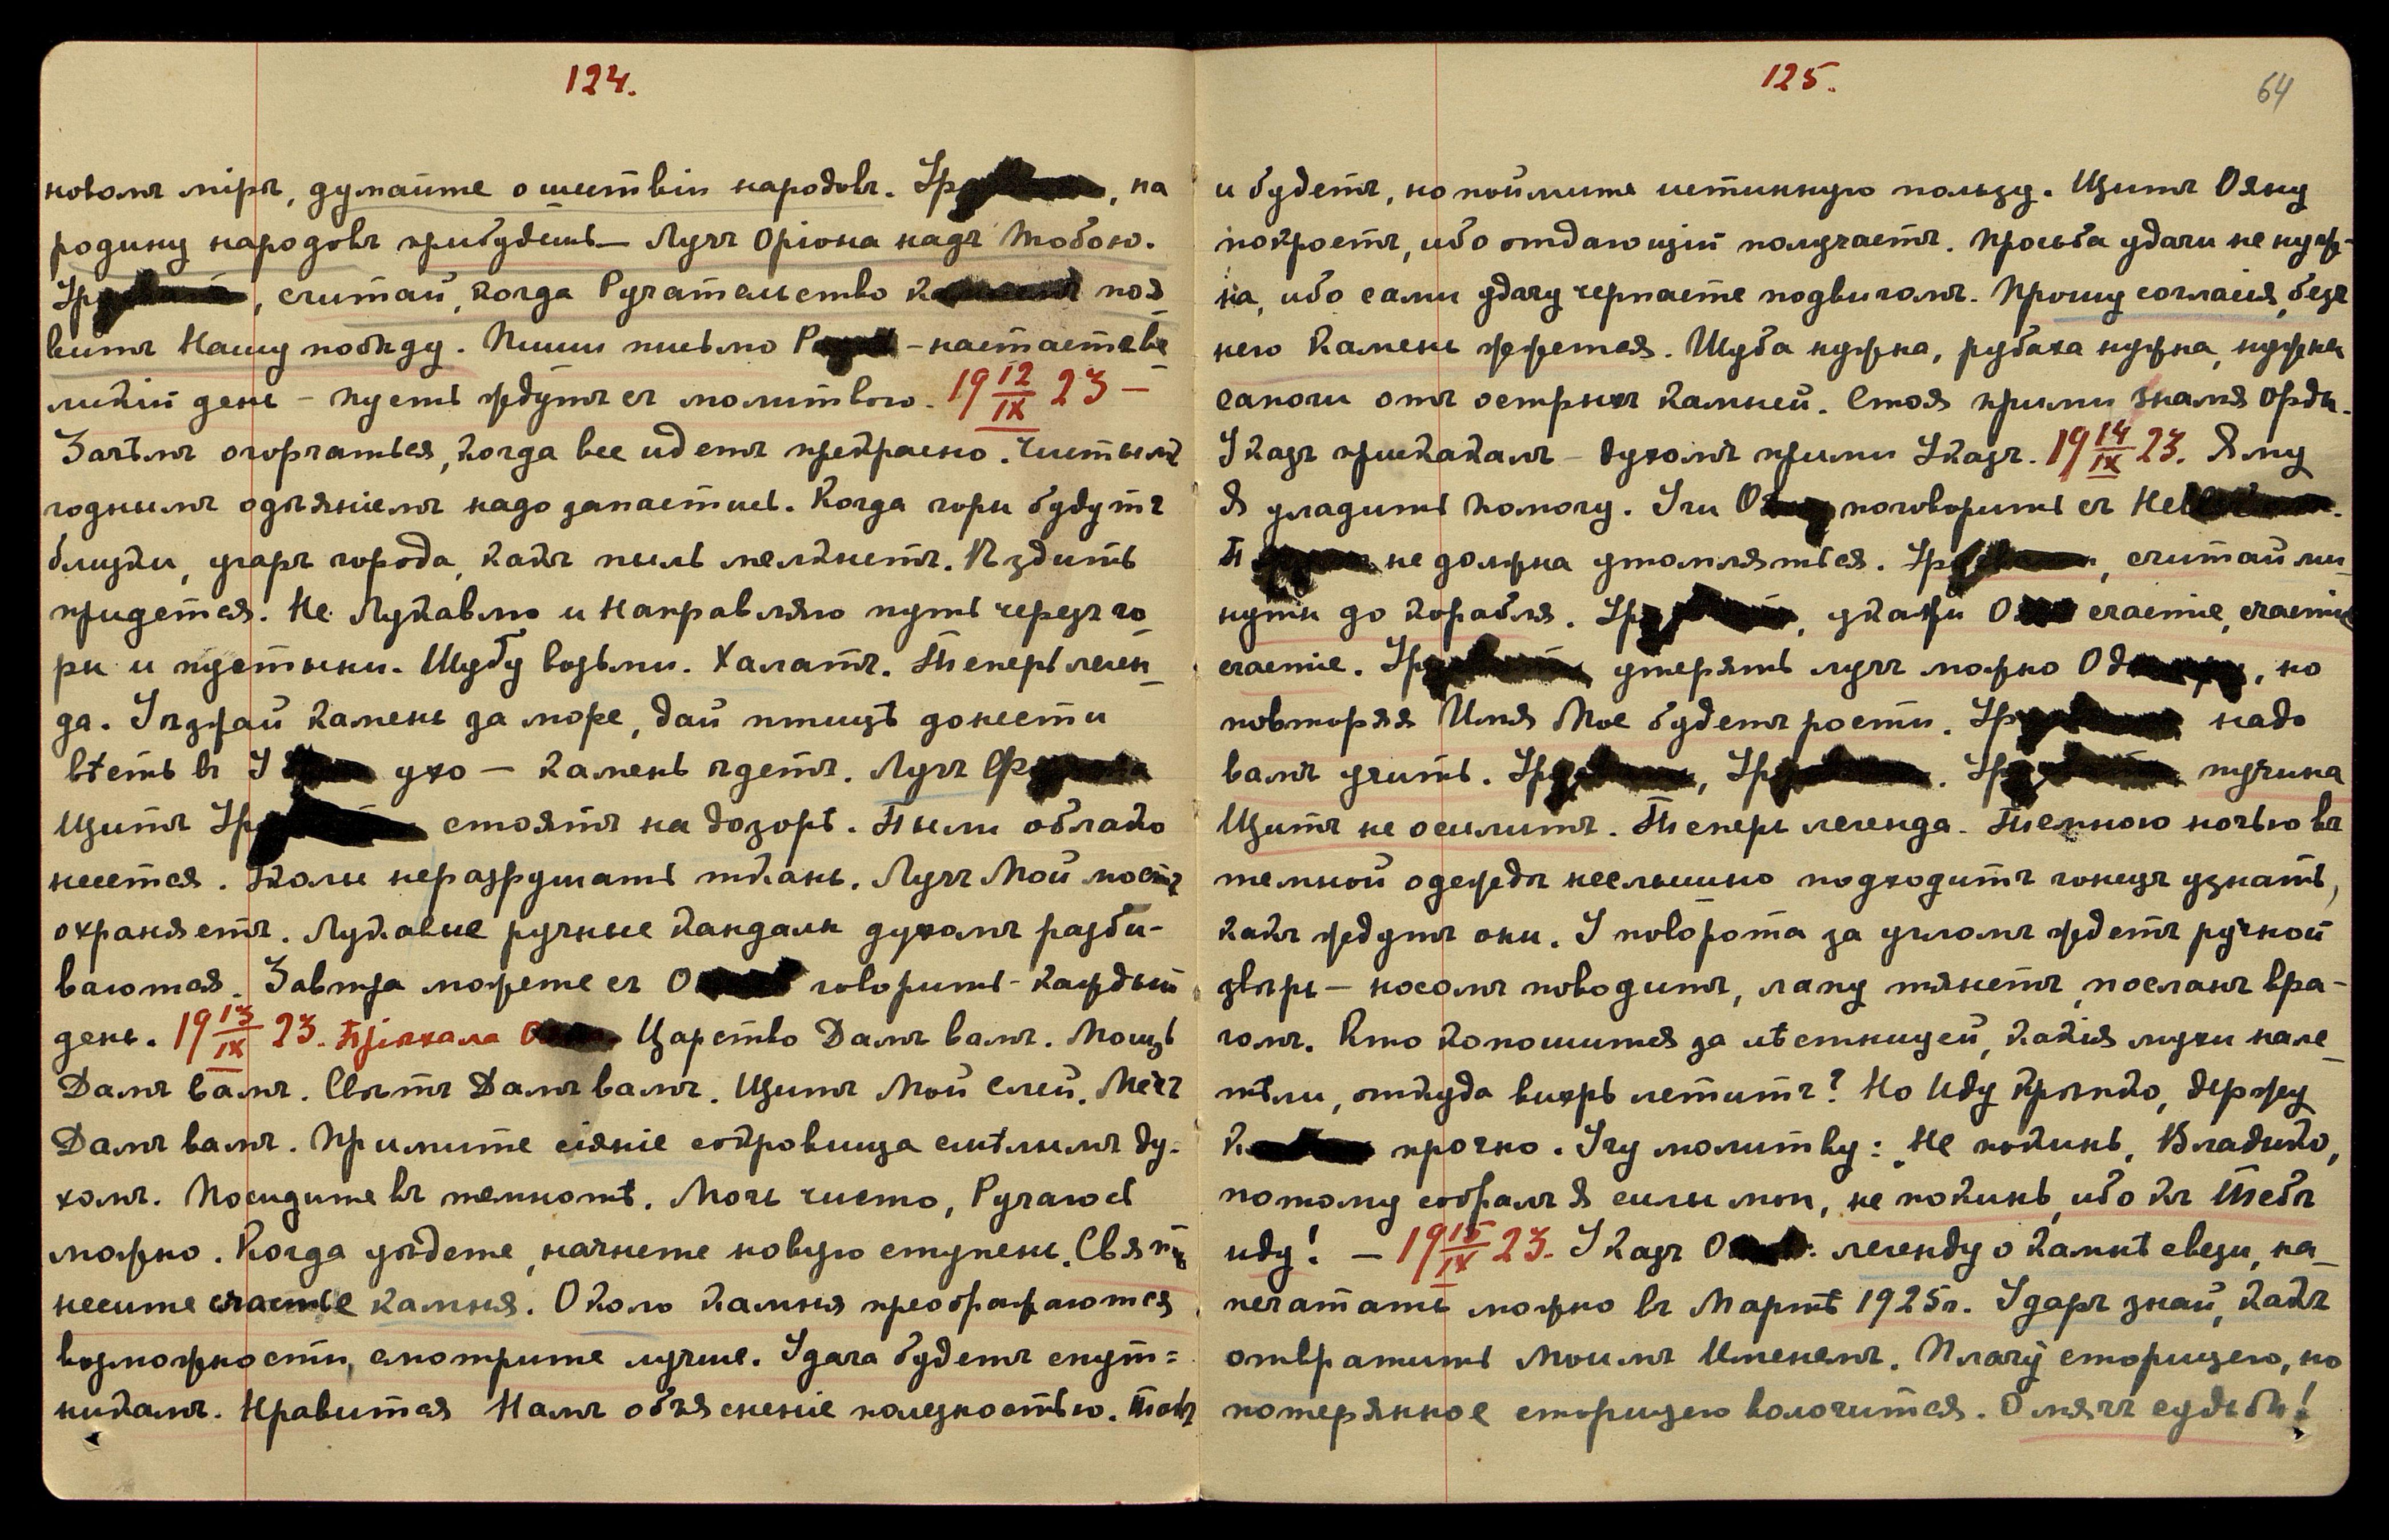 124.
новомъ мірѣ, думайте о шествіи народовъ. Ур, на
родину народовъ прибудешь — Лучъ Оріона надъ Тобою.
Ур, считай, когда Ручательство К поз
витъ Нашу победу. Пиши письмо Р — настаетъ ве
ликій день — пусть ждутъ съ молитвою. 19 12/IX 23 —
Зачѣмъ огорчаться, когда все идетъ прекрасно. Чистымъ
годнымъ одѣяніемъ надо запастись. Когда горы будутъ
близки, угаръ города, какъ пыль мелькнетъ. Ѣздить
придется. Не Лукавлю и Направляю путь черезъ го_
ры и пустыни. Шубу возьми. Халатъ. Теперь леген_
да. Уѣзжай камень за море, дай птицѣ донести
вѣсть въ У ухо — камень ѣдетъ. Лучъ Ф
Щитъ Ур стоятъ на дозорѣ. Пыли облако
несется. Уколы неразрушатъ ткань. Лучъ Мой мостъ
охраняетъ. Лукавые ручные кандалы духомъ разби-
ваются. Завтра можете съ О говорить — каждый
день. 19 13/IX 23. Пріѣхала О Царство Дамъ вамъ. Мощь
Дамъ вамъ. Свѣтъ Дамъ вамъ. Щитъ Мой Слей. Мечъ
Дамъ вамъ. Примите сіяніе сокровища смѣлымъ ду-
хомъ. Посидите въ темнотѣ. Мочь чисто, Ручаюсь
можно. Когда уѣдете, начнете новую ступень. Свято
несите счастье камня. Около камня преображаются
возможности, смотрите лучше. Удача будетъ спут=
никамъ. Нравится Намъ объясненіе полезностью. Такъ
125.
64
и будетъ, но поймите истинную пользу. Щитъ Ояну
покроетъ, ибо отдающій получаетъ. Просьба удачи не нуж-
на, ибо сами удачу черпаете подвигомъ. Прошу согласия, безъ
него Камень жжется. Шуба нужна, рубаха нужна, нужны
сапоги отъ острыхъ камней. Стоя прими знамя Орды.
Указъ прискакалъ — духомъ прими Указъ. 19 14/IX 23. Яму
Я уладить помогу. Учи О поговорить съ Не
П не должна утомляться. Ур, считай ми_
нуты до корабля. Ур, укажи О счастіе, счастіе
счастіе. Ур утерять лучъ можно Од, но
повторяя Имя Мое будетъ рости. Ур надо
вамъ учить. Ур, Ур. Ур пучина
Щитъ не осилитъ. Теперь легенда. Темною ночью въ
темной одеждѣ неслышно подходитъ гонецъ узнать,
какъ ждутъ они. У поворота за угломъ ждетъ ручной
звѣрь — носомъ поводитъ, лапу тянетъ, посланъ вра-
гомъ. Кто копошится за лѣстницей, какія мухи нале_
тѣли, откуда вихрь летитъ? Но Иду крѣпко, держу
К прочно. Учу молитву: „Не покинь, Владыко,
потому собралъ я силы мои, не покинь, ибо къ Тебѣ
иду! — 19 15/IX 23. Указъ О: легенду о камнѣ свези, на_
печатать можно въ Мартѣ 1925г. Ударъ знай, какъ
отвратить Моимъ Именемъ. Плачу сторицею, но
потерянное сторицею волочится. О мячъ судьбы!